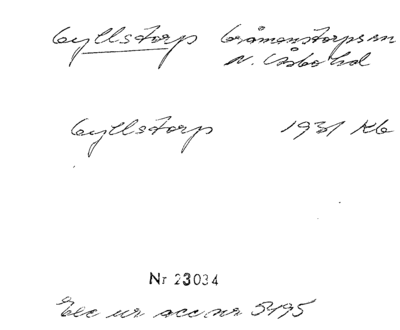 Gyllstorp Gråmanstorps sn
N. Åsbo hd
Gyllstorp 1931 Kb
Nr 23034
Exc ur acc nr 5495